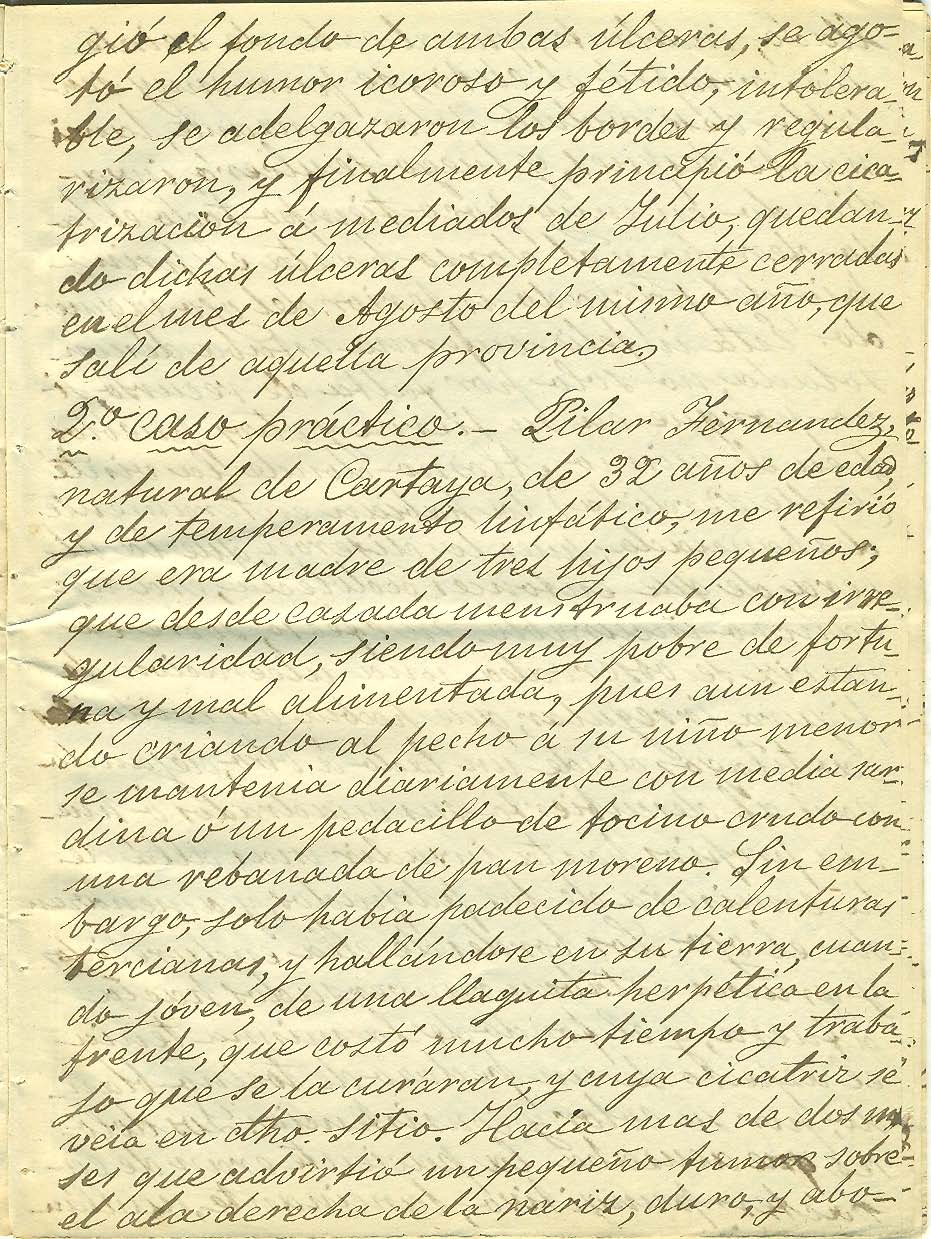 gió el fondo de ambas úlceras, se ago-
tó el humor icoroso y fétido, intolera-
ble, se adelgazaron los bordes y regula-
rizaron, y finalmente principió la cica-
trizacion á mediados de Julio, quedan-
do dichas úlceras completamente cerradas
en el mes de Agosto del mismo año, que
salí de aquella provincia,
2.º caso práctico. — Pilar Fernandez,
natural de Cartaya, de 32 años de edad,
y de temperamento linfático, me refirió
que era madre de tres hijos pequeños;
que desde casada menstruaba con irre-
gularidad, siendo muy pobre de fortu-
na y mal alimentada, pues aun estan-
do criando al pecho á su niño menor
se mantenia diariamente con media sar-
dina ó un pedacillo de tocino crudo con
una rebanada de pan moreno. Sin em-
bargo, solo habia padecido de calenturas
tercianas, y hallándose en su tierra, cuan-
do jóven, de una llaguita herpética en la
frente, que costó mucho tiempo y trabá-
jo que se la curáran, y cuya cicatriz se
veia en dho. sitio. Hacía mas de dos me-
ses que advirtió un pequeño tumor sobre
el ala derecha de la nariz, duro, y abo-